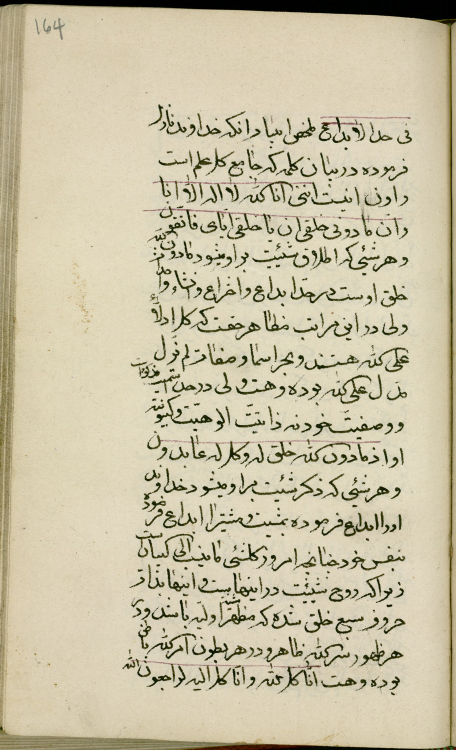 164
فی حد الابداع ملخص این باب آنکه خداوند نازل
فرموده در بیان کلمه که جامع کل علم است
و اون اینست اننی انا الله لا اله الا انا
و ان ما دونی خلقی ان یا خلقی ایای فاتقون
و هر شئی که اطلاق شیئیت بر او میشود ما دون الله
خلق او است در حد ابداع و اختراع و انشاء و احداث
ولی در این مراتب مظاهر حقت که کل ادلاء
علی الله هستند و بحر اسما و صفات لم یزل
مدل علی الله بوده و هست ولی در حد
و وصفیت خود نه ذاتیت الوهیت و کینونیت
او اذ ما دون الله خلق له و کل له عابدون
و هر شئی که ذکر شیئیت بر او میشود خداوند
او را ابداع فرموده بمشیت و مشیت را ابداع فرموده
بنفس خود چنانچه امروز کلشئی ما ینسب الی البیان است
زیرا که روح شیئیت در اینها است و اینها بذات
حروف سبع خلق شده که مظهر اولیه باشد و در
هر ظهور سر الله ظاهر و در هر بطون امر الله باطن
بوده و هست انا کل لله و انا کل الیه لراجعون